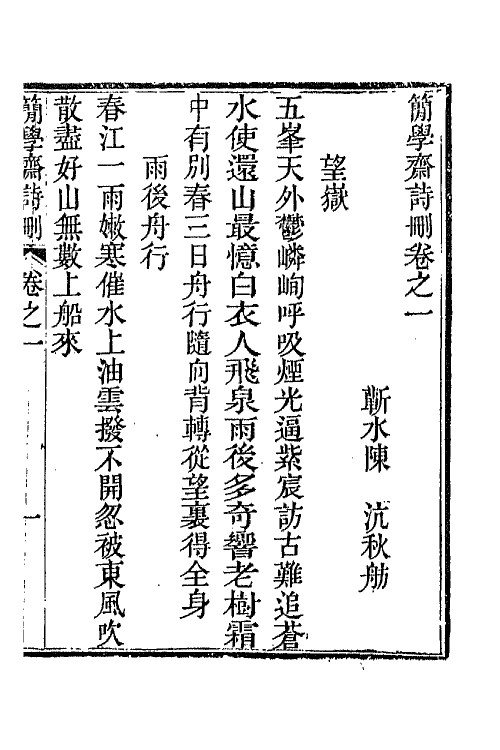 簡學齋詩刪卷之一
蘄水陳　沆秋舫
望嶽
五峯天外鬱嶙峋呼吸煙光逼紫宸訪古難追蒼
水使還山最憶白衣人飛泉雨後多奇響老樹霜
中有別春三日舟行隨向背轉從望裏得全身
雨後舟行
春江一雨嫩寒催水上油雲撥不開忽被東風吹
散盡好山無數上船來
簡學齋詩刪　卷之一　一